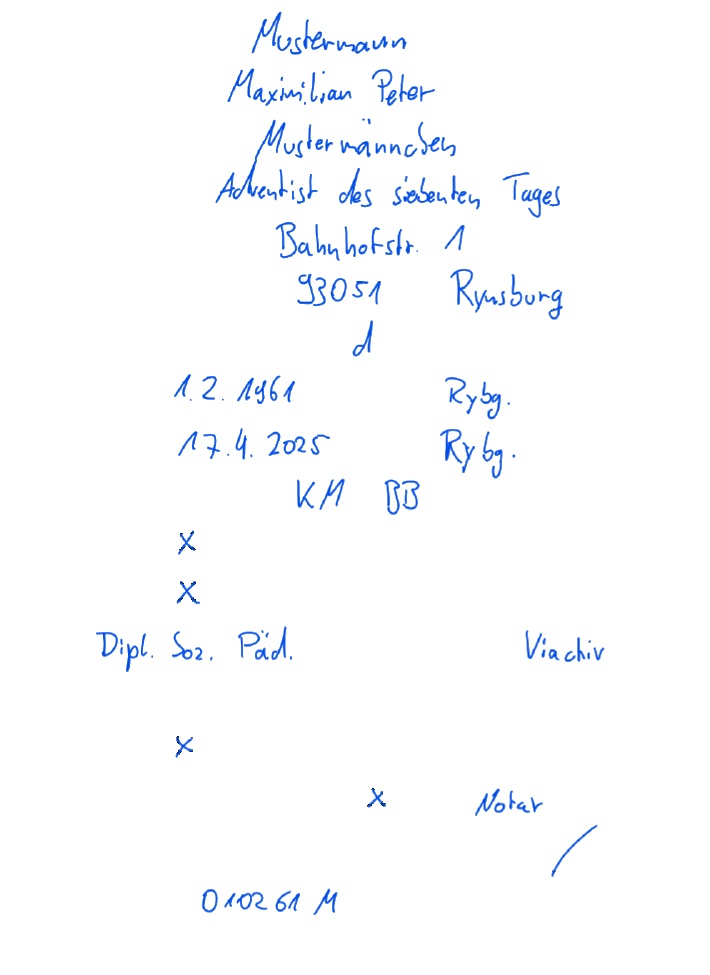 Mustermann
Maximilian Peter
Mustermännchen
Adventist des siebenten Tages
Bahnhofstr. 1
93051 Rynsburg
d
1.2.1961 Rybg.
17.4.2025 Rybg.
KM BB
x
x
Dipl. Soz. Päd. Viachiv
x
x Notar
/
010261 M